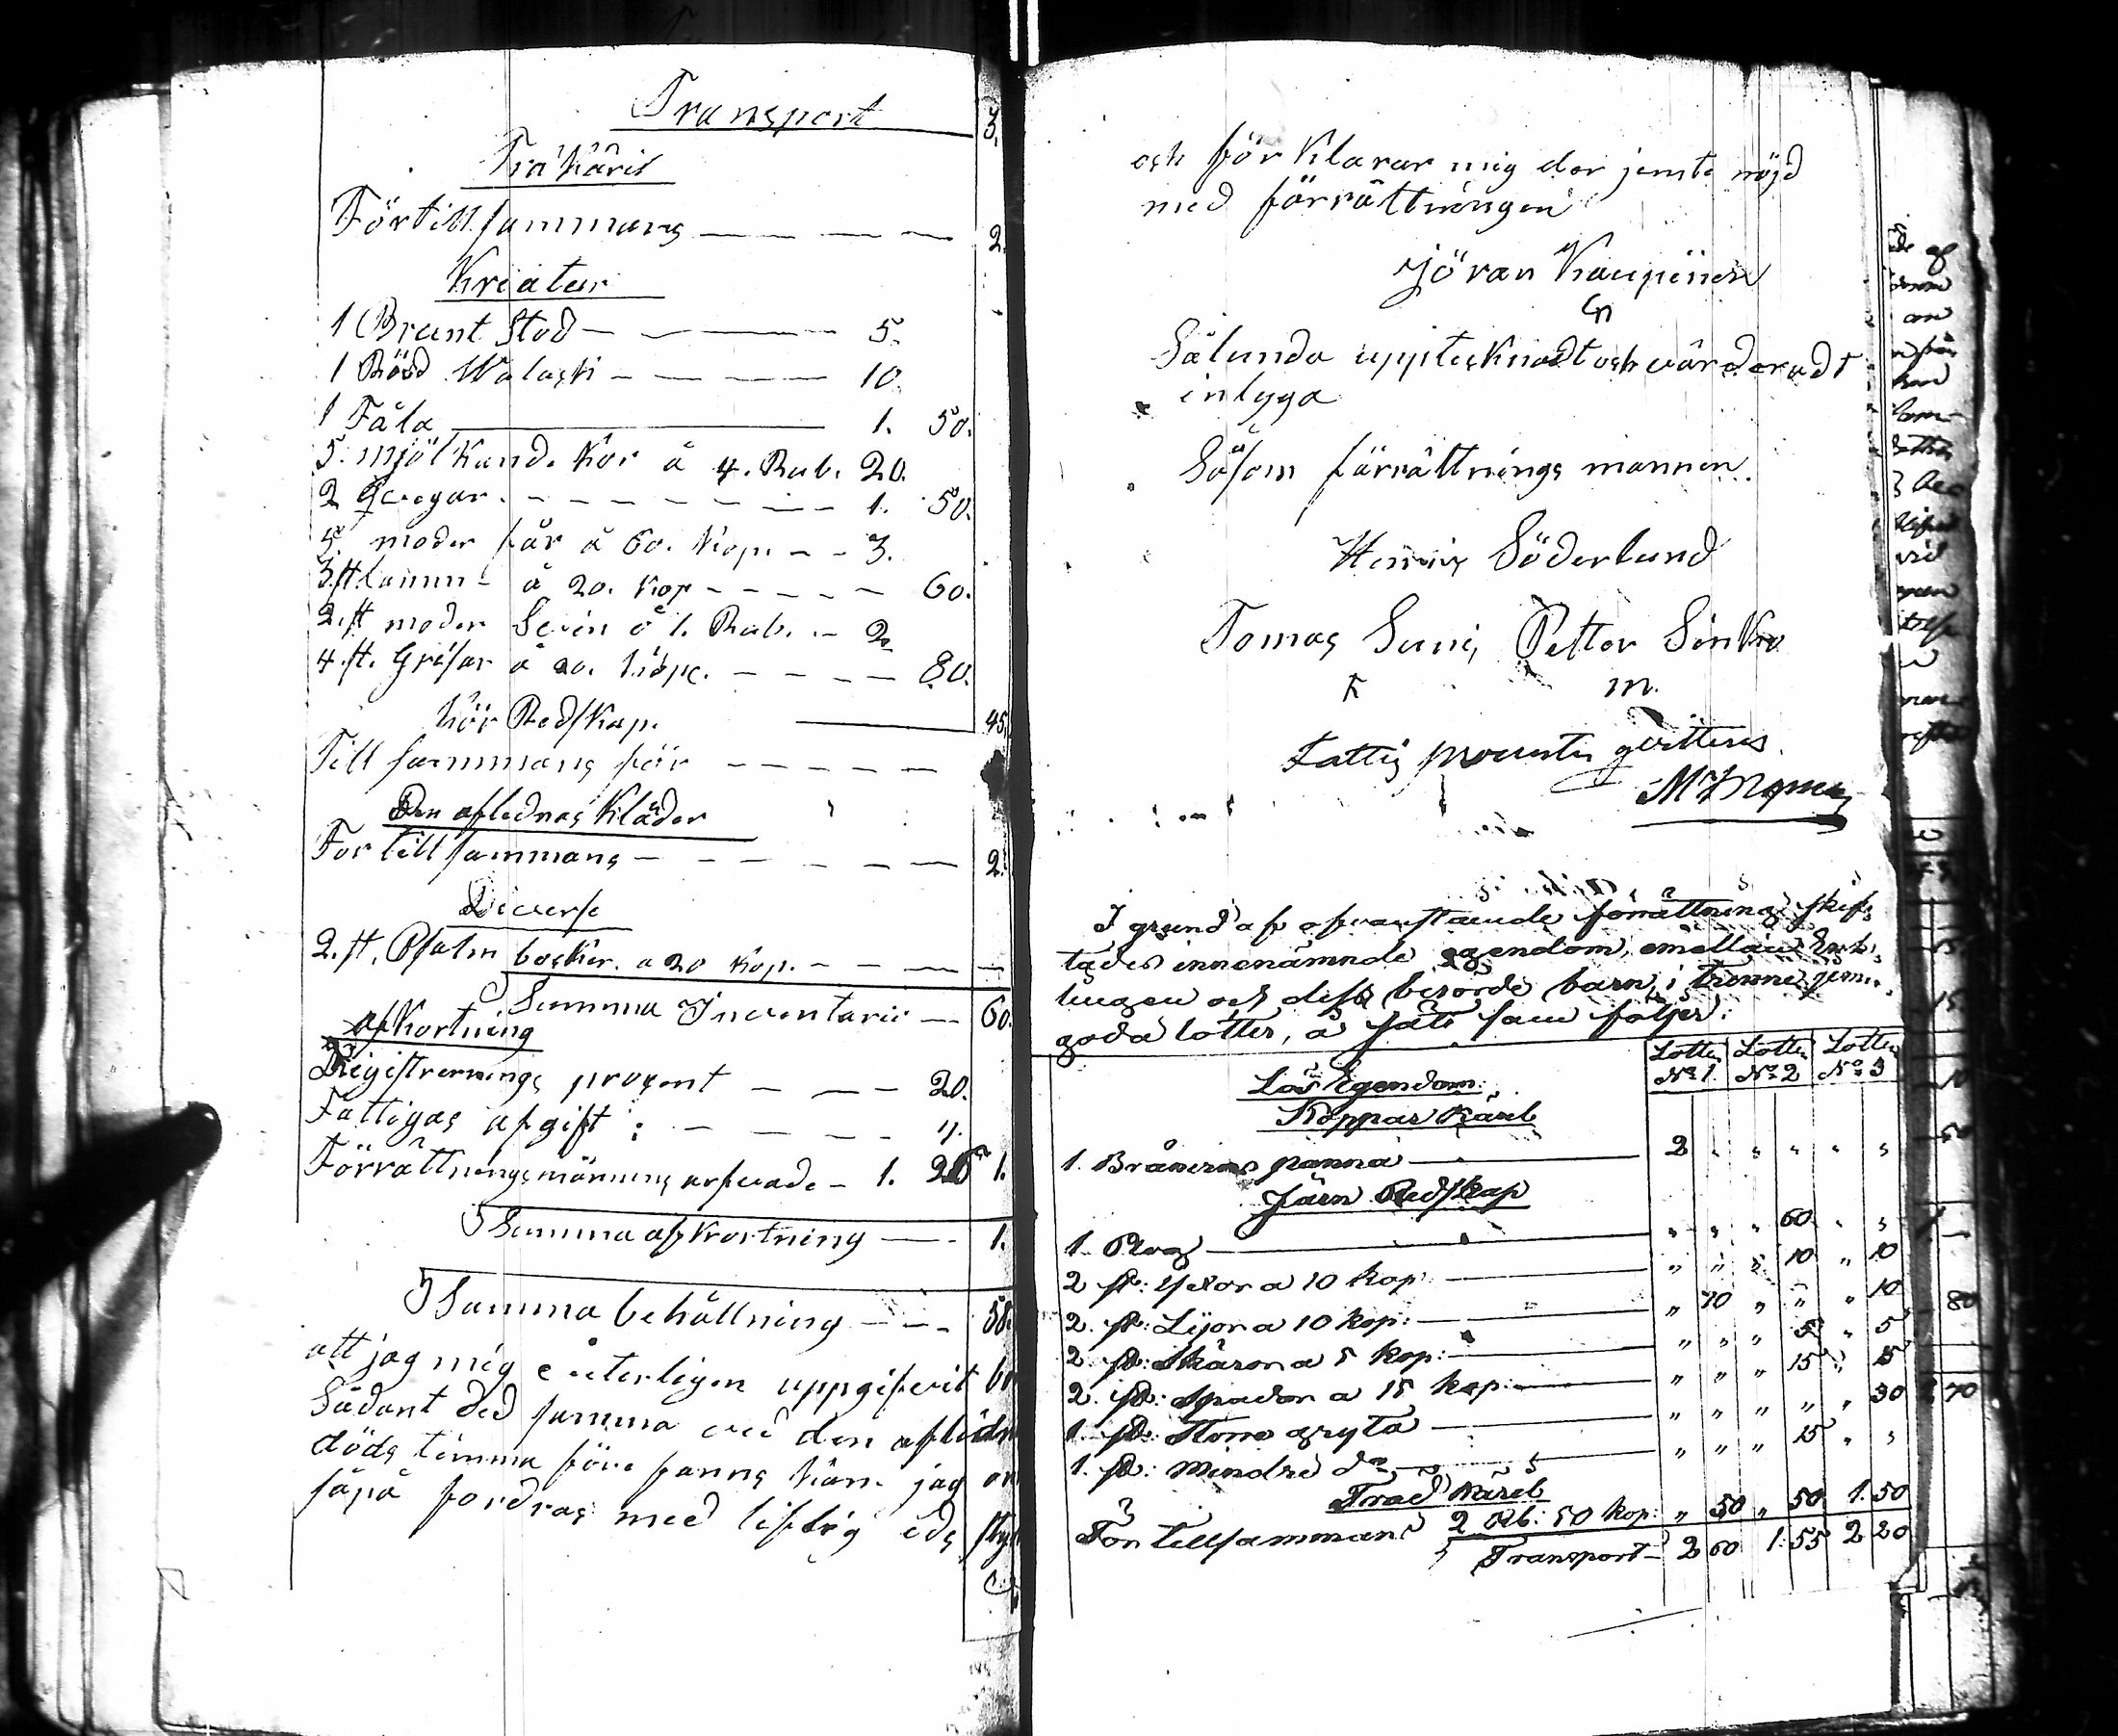 Transport 3.
Trä Käril
För till sammans — — — — 2.
Kriatur
1 Brunt Stod — — — 5.
1 Röd Walack — — — — 10.
1 Fåla — 1. 50.
5. mjölkand. Kor á 4. Rub. 20.
2 Qvigor. — — — — — 1. 50.
5. moder får á 60. Kop. — — 3.
3 st lamm — á 20. Kop — — — — 60.
2. st moder Svin á 1. Rub. — 2
4. st. Grisar á 20. Kop. — — — — 80. 45.
Kör Redskap.
Till sammans för — — — — —
Den aflednas Kläder
For till sammans — — — — — — 2.
Diverse
2. st. Psalm böcker. a 20 Kop. — — — —
Summa Inventarie — 60.
afkortning
Registrernings procent — — — 20.
Fattigas afgift : — — — — 4.
Förrättningsmännens arfvade — 1. 20 1.
Summa afkortning — — 1.
Summa behållning — — — 58.
att jag mig e uterligen uppgifvit
Sådant ded samma vid den aflidn
döds timma före fanns kan jag om
såpå fordras med liflig eds
och förklarar mig der jemte nöjd
med förrättningen
Jöran Kaupinen
Sålunda upptecknadt och värderadt
intyga
Såsom förrättnings mannen
Henric Söderlund
Tomas Suni, Petter Sinko
m.
Fattig procenten qvitteras.
I grund af ofvanstaende förrättning skif,
tades innenämnde egendom, emellan Enk,
lingen och dess berörde barn, i trenne jemn,
goda lotter, å sätt som följer:
Lotten Nº 1. Lotten Nº 2 Lotten Nº 3
Lös Egendom:
Koppar Käril
1. Bränvins panna — 2 " " " " "
Järn Redskap
1. Plog — " " " 60 " "
2 st: Yxor a 10 kop: — " " " 10 " 10
2. st: Lijor a 10 kop: — " 10 " " " 10
2 st: Skäror a 5 kop: — " " " 5 " 5
2. st: Spador a 15 kop: — " " " 15 " 15
1. st: Störe gryta — " " " " " 30
1. st: Mindre do — " " " 15 " "
Träd Käril
För tillsammans 2 Rb: 50 kop: " 50 " 50 1. 50
Transport — 2 60 1. 55 2 20
80
70